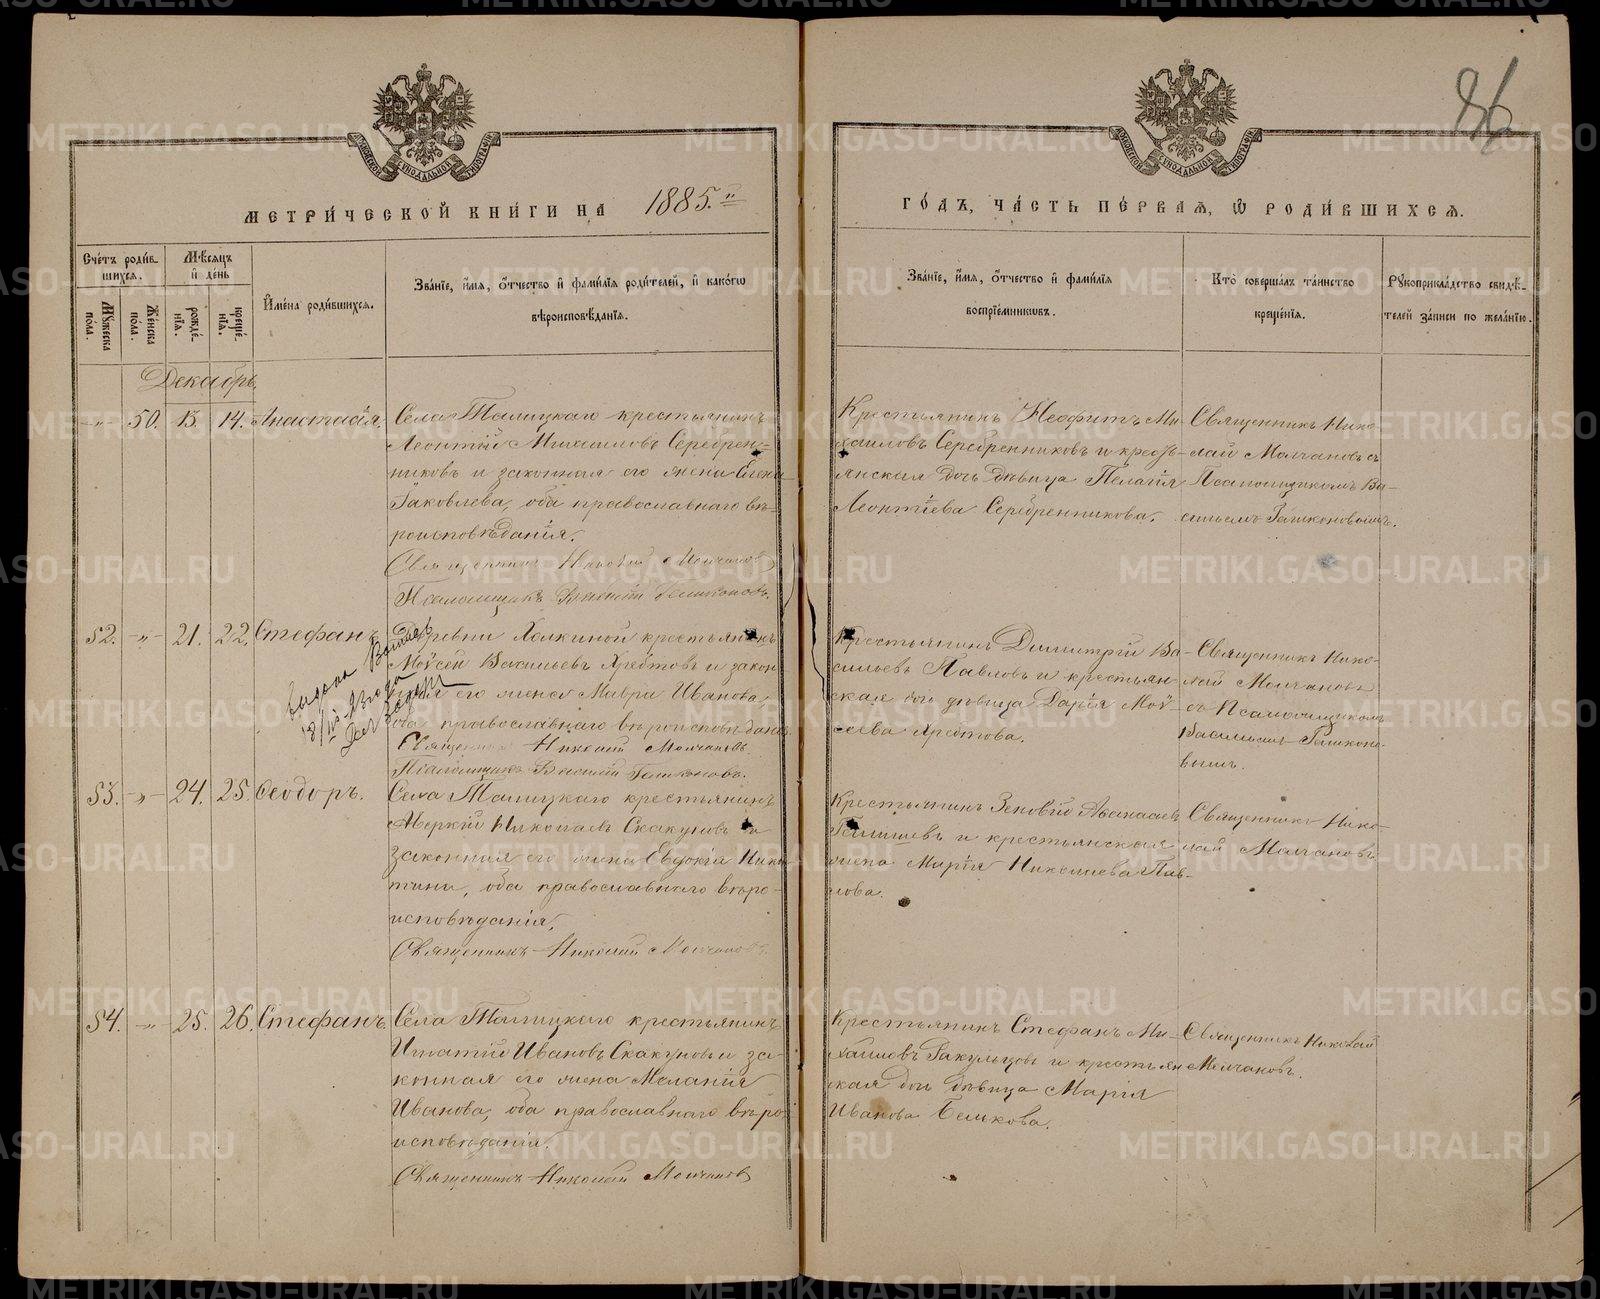 86
МЕТРИ́ЧЕСКОЙ КНИ́ГИ НА 1885.й
ГО́ДЪ, ЧА́СТЬ ПЕ́РВАЯ, Ѡ РОДИ́ВШИХСЯ.
Сче́тъ роди́в-
шихся.
Мꙋ́жеска пола.
Же́нска пола.
Мѣ́сяцъ и де́нь
рожде́-
нїѧ.
креще́-
нїѧ.
И҆мена̀ роди́вшихся.
Зва́нїе, и҆́мя, ѻ҆́тчество и҆ фами́лїя роди́телей, и҆ како́гѡ
вѣроисповѣ́данїя.
Зва́нїе, и҆́мя, ѻ҆́тчество и҆ фами́лїя
воспрїе́мникѡвъ.
Кто̀ соверша́лъ та́инство
креще́нїя.
Рꙋкоприкла́дство свидѣ́-
телей за́писи по жела́нїю.
Декабрь.
-"- 50. 13. 14. Анастасія.
Села Талицкаго крестьянинъ
Леонтій Михаиловъ Серебрен-
никовъ и законная его жена Елена
Іаковлева, оба православнаго вѣ-
роисповѣданія.
Священникъ Николай Молчановъ
Псаломщикъ Василій Гашконовъ.
Крестьянинъ Неофитъ Ми-
хаиловъ Серебренниковъ и кресть-
янская дочь дѣвица Пелагія
Леонтіева Серебренникова.
Священникъ Нико-
лай Молчановъ съ
Псаломщикомъ Ва-
сильемъ Гашконовымъ.
52. -"- 21. 22. Стефанъ
Деревни Халкиной крестьянинъ
Моѵсей Васильевъ Хребтовъ и закон-
ная его жена Мавра Иванова,
оба православнаго вѣроисповѣданія
Священникъ Николай Молчановъ.
Псаломщикъ Василій Гашконовъ.
Крестьянинъ Димитрій Ва-
сильевъ Павловъ и крестьян-
ская дочь дѣвица Дарія Моѵ-
сеева Хребтова.
Священникъ Нико-
лай Молчановъ
съ Псаломщикомъ
Васильемъ Гашконо-
вымъ.
53. -"- 24. 25. Ѳеодоръ.
Села Талицкаго крестьянинъ
Аверкій Николаевъ Скакуновъ и
законная его жена Евдокія Ники-
тина, оба православнаго вѣро-
исповѣданія.
Священникъ Николай Молчановъ
Крестьянинъ Зеновій Аѳанасьев
и крестьянская
жена Марія Николаева Пав-
лова.
Священникъ Нико-
лай Молчановъ
54. -"- 25. 26. Стефанъ.
Села Талицкаго крестьянинъ
Игнатій Ивановъ Скакуновъ и за-
конная его жена Меланія
Иванова, оба православнаго вѣро-
исповѣданія.
Священникъ Николай Молчановъ
Крестьянинъ Стефанъ Ми-
хаиловъ и крестьян-
ская дочь дѣвица Марія
Иванова Белькова.
Священникъ Николай
Молчановъ.
METRIKI.GASO-URAL.RU